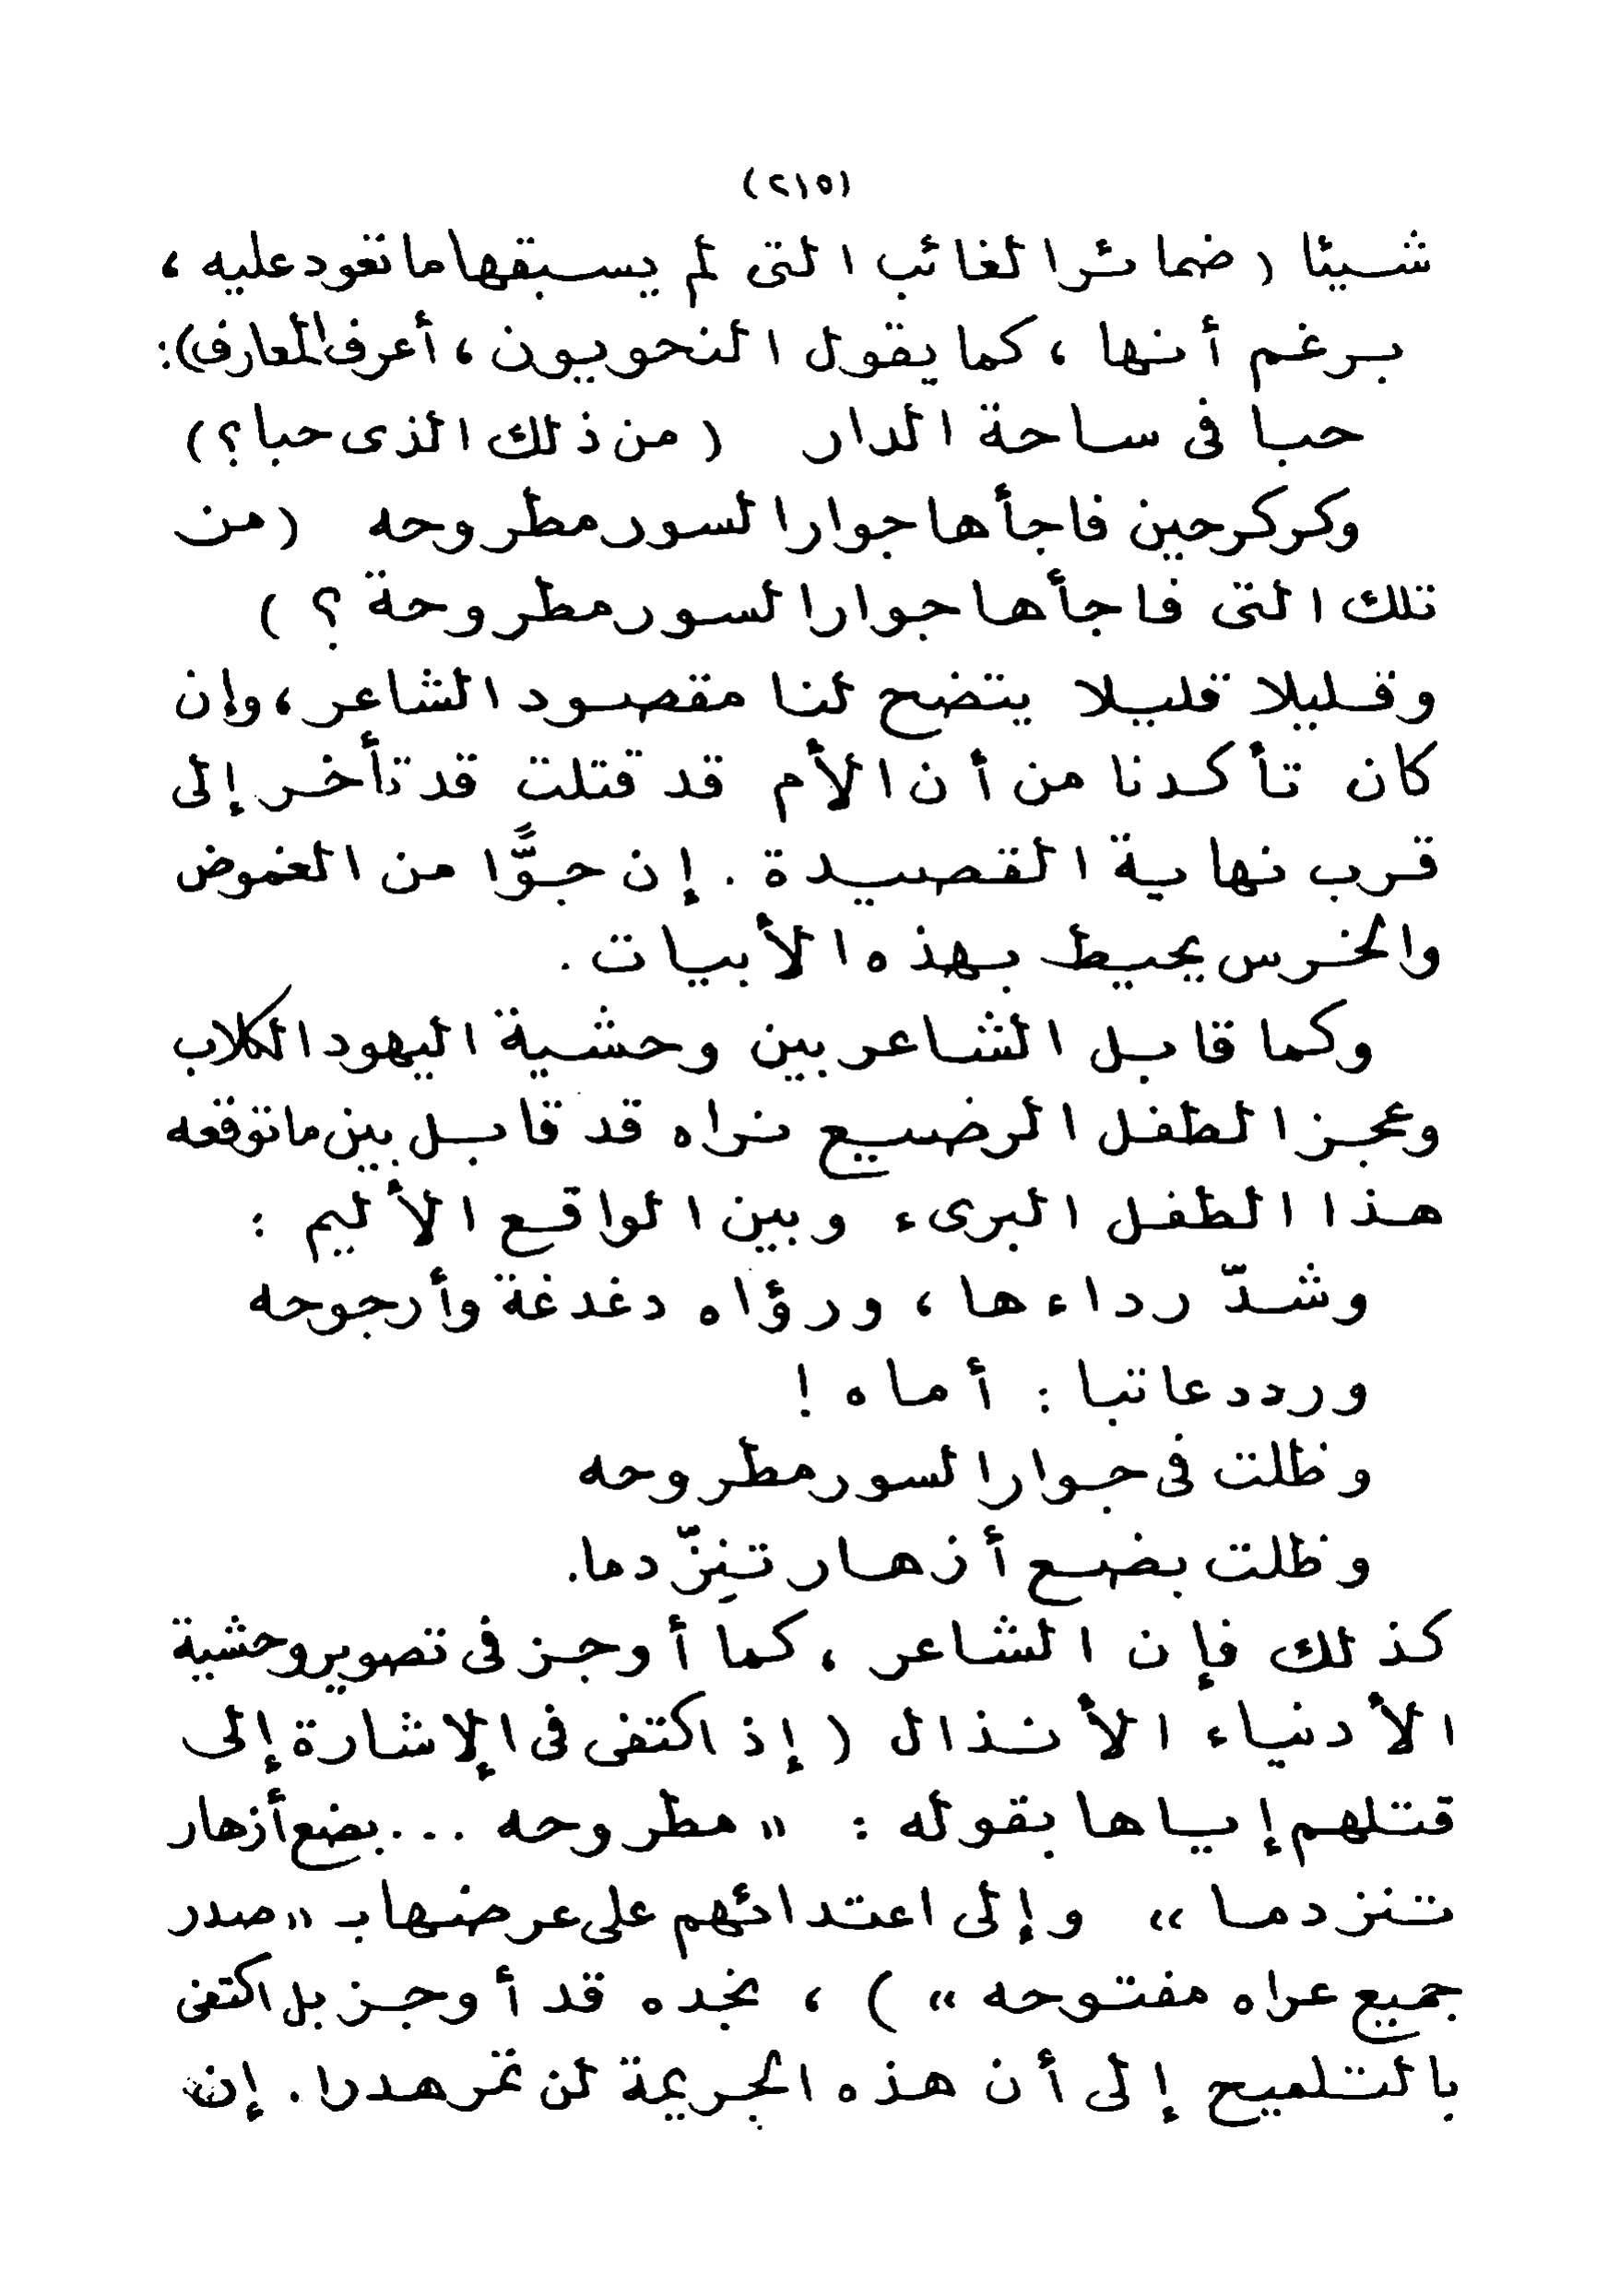 (٢١٥)
شيئا (ضمائر الغائب التى لم يسبقها ما تعود عليه ،
برغم أنها ، كما يقول النحويون ، أعرف المعارف):
حبا فى ساحة الدار (من ذلك الذى حبا؟)
وكركر حين فاجأها جوار السور مطروحه (من
تلك التى فاجأها جوار السور مطروحة ؟)
وقليلا قليلا يتضح لنا مقصود الشاعر ، وإن
كان تأكدنا من أن الأم قد قتلت قد تأخر إلى
قرب نهاية القصيدة . إن جوًّا من الغموض
والخرس يحيط بهذه الأبيات .
وكما قابل الشاعر بين وحشية اليهود الكلاب
وعجز الطفل الرضيع نراه قد قابل بين ما توقعه
هذا الطفل البرىء وبين الواقع الأليم :
وشدّ رداءها ، ورؤاه دغدغة وأرجوحه
وردد عاتبا : أماه !
وظلت فى جوار السور مطروحه
وظلت بضع أزهار تنِزّ دما.
كذلك فإن الشاعر ، كما أوجز فى تصوير وحشية
الأدنياء الأنذال (إذ اكتفى فى الإشارة إلى
قتلهم إياها بقوله : « مطروحه ... بضع أزهار
تنز دما » وإلى اعتدائهم على عرضها بـ « صدر
جميع عراه مفتوحه ») ، نجده قد أوجز بل اكتفى
بالتلميح إلى أن هذه الجريمة لن تمر هدرا . إن